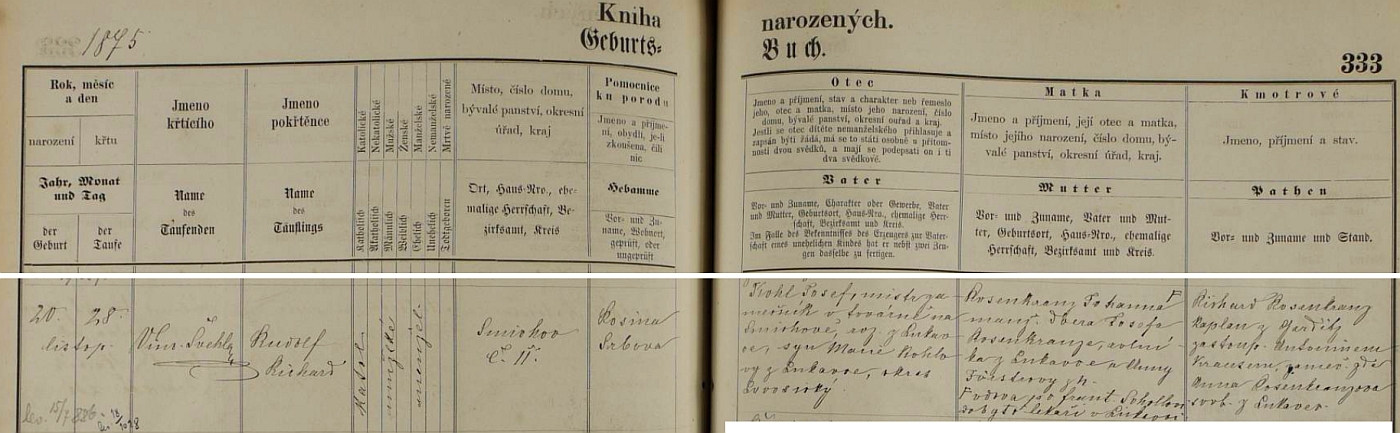 1875
Kniha
Geburts=
narozených.
Buch.
333
Rok, měsíc
a den
narození
křtu
Jahr, Monat
und Tag
der
Geburt
der
Taufe
Jmeno
křtícího
Name
des
Taufenden
Jmeno
pokřtěnce
Name
des
Täuflings
Katolické
Nekatolické
Mužské
Ženské
Manželské
Nemanželské
Mrtvě narozené
Katholisch
Akatholisch
Männlich
Weiblich
Ehelich
Unehelich
Todtgeboren
Místo, číslo domu,
bývalé panství, okresní
úřad, kraj
Ort, Haus-Nro., ehe-
malige Herrschaft, Be-
zirksamt, Kreis
Pomocnice
ku porodu
Jmeno a příjme-
ní, obydlí, je-li
zkoušena, čili
nic
Hebamme
Vor- und Zu-
name, Wohnort,
geprüft, oder
ungeprüft
Otec
Jmeno a příjmení, stav a charakter neb řemeslo
jeho, otec a matka, místo jeho narození, číslo
domu, bývalé panství, okresní ouřad a kraj.
Jestli se otec dítěte nemanželského přihlasuje a
zapsán býti žádá, má se to státi osobně u přítom-
nosti dvou svědků, a mají se podepsati on i ti
dva svědkové.
Vater
Vor- und Zuname, Charakter oder Gewerbe, Vater
und Mutter, Geburtsort, Haus-Nro., ehemalige Herr-
schaft, Bezirksamt und Kreis.
Im Falle des Bekenntnisses des Erzeugers zur Vater-
schaft eines unehelichen Kindes hat er nebst zwei Zeu-
gen dasselbe zu fertigen.
Matka
Jmeno a příjmení, její otec a matka,
místo jejího narození, číslo domu, bý-
valé panství, okresní úřad, kraj.
Mutter
Vor- und Zuname, Vater und Mut-
ter, Geburtsort, Haus-Nro., ehemalige
Herrschaft, Bezirksamt und Kreis.
Kmotrové
Jmeno, příjmení a stav.
Pathen
Vor- und Zuname und Stand.
20. 28.
listop.
Vinc. Švehla
Rudolf
Richard
Katol
mužské
manžel.
Smichov
č. 11.
Rosina
Srbova
Kohl Josef, mistr za
mečník v továrně na
Smichově, roz. z Lukav
ce, syn Marie Kohlo
vy z Lukavce, okres
Lovosický.
Rosenkranz Johanna
manž. dcera Josefa
Rosenkranze, rolní
ka z Lukavce a Anny
Försterovy
vdova po frant.
lékaři v
Richard Rosenkranz
Kaplan z
zastoup. Antonínem
Krausem, zámeč. zde
Anna Rosenkranzova
svob. z Lukavce.